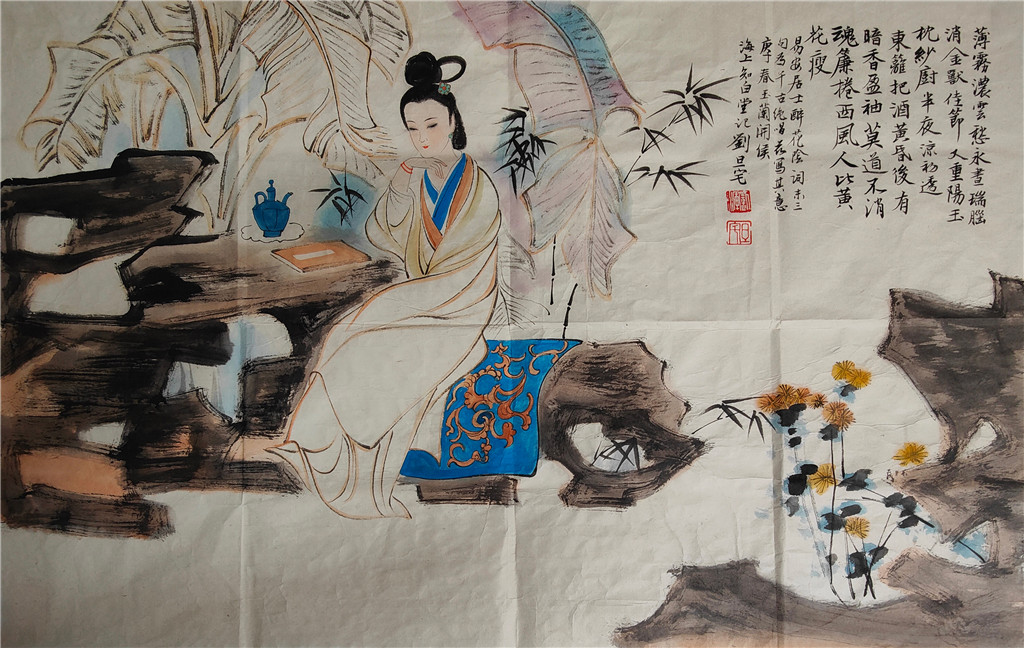 薄霧濃雲愁永晝瑞腦
消金獸佳節又重陽玉
枕紗厨半夜涼初透
東籬把酒黃昏後有
暗香盈袖莫道不消
魂簾捲西風人比黃
花瘦
易安居士醉花陰詞末三
句為千古絕唱寫其意
庚春玉蘭開候
海上知白堂記劉旦宅